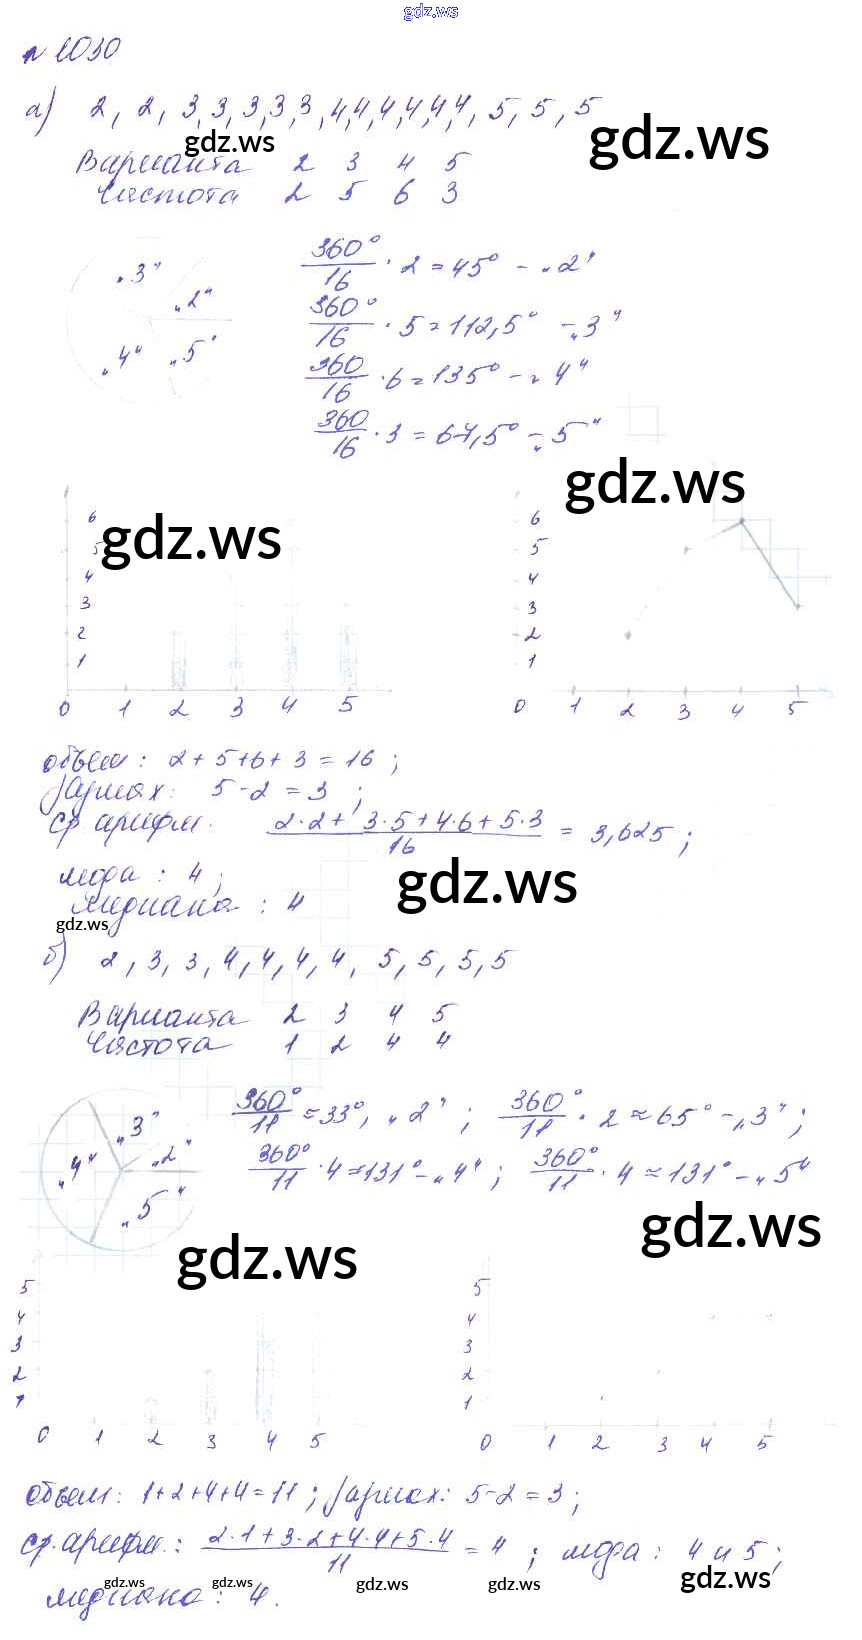 gdz.ws
№ 1030
а) 2, 2, 3, 3, 3, 3, 3, 4, 4, 4, 4, 4, 4, 5, 5, 5
gdz.ws
gdz.ws
Варианта 2 3 4 5
Частота 2 5 6 3
360°/16 · 2 = 45° - „2"
360°/16 · 5 = 112,5° - „3"
360/16 · 6 = 135° - „4"
360/16 · 3 = 67,5° - „5"
„3"
„2"
„4" „5"
gdz.ws
gdz.ws
6
5
4
3
2
1
0 1 2 3 4 5
6
5
4
3
2
1
0 1 2 3 4 5
объем: 2 + 5 + 6 + 3 = 16;
размах: 5 - 2 = 3;
ср арифм. (2·2 + 3·5 + 4·6 + 5·3)/16 = 3,625;
мода: 4;
gdz.ws
медиана: 4
gdz.ws
б) 2, 3, 3, 4, 4, 4, 4, 5, 5, 5, 5
Варианта 2 3 4 5
Частота 1 2 4 4
360°/11 ≈ 33°, „2"; 360°/11 · 2 ≈ 65° - „3";
360°/11 · 4 ≈ 131° - „4"; 360°/11 · 4 ≈ 131° - „5"
„3"
„4" „2"
„5"
gdz.ws
gdz.ws
5
4
3
2
1
0 1 2 3 4 5
5
4
3
2
1
0 1 2 3 4 5
объем: 1+2+4+4=11; размах: 5-2=3;
ср. арифм.: (2·1+3·2+4·4+5·4)/11 = 4; мода: 4 и 5;
медиана: 4.
gdz.ws gdz.ws gdz.ws gdz.ws gdz.ws